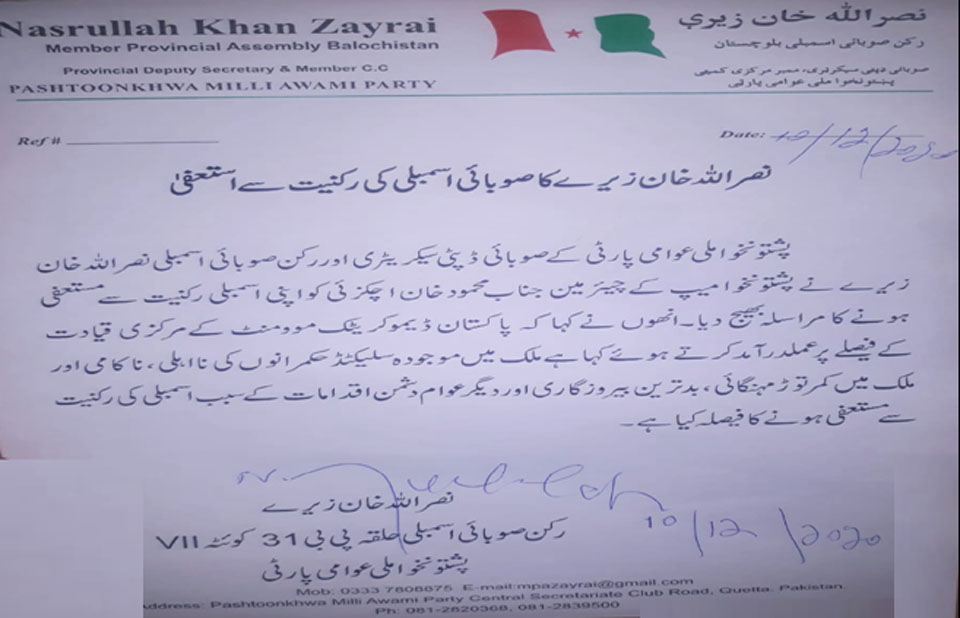 Nasrullah Khan Zayrai
Member Provincial Assembly Balochistan
Provincial Deputy Secretary & Member C.C
PASHTOONKHWA MILLI AWAMI PARTY
نصراللہ خان زیرې
رکن صوبائی اسمبلی بلوچستان
صوبائی ڈپٹی سیکرٹری، ممبر مرکزی کمیٹی
پښتونخوا ملی عوامی پارٹی
Ref #
Date: 10/12/2020
نصراللہ خان زیرے کا صوبائی اسمبلی کی رکنیت سے استعفیٰ
پشتونخوا ملی عوامی پارٹی کے صوبائی ڈپٹی سیکریٹری اور رکن صوبائی اسمبلی نصراللہ خان
زیرے نے پشتونخوا میپ کے چیئرمین جناب محمود خان اچکزئی کو اپنی اسمبلی رکنیت سے مستعفی
ہونے کا مراسلہ بھیج دیا۔ انھوں نے کہا کہ پاکستان ڈیموکریٹک موومنٹ کے مرکزی قیادت
کے فیصلے پر عملدرآمد کرتے ہوئے کہا ہے ملک میں موجودہ سلیکٹڈ حکمرانوں کی نااہلی، ناکامی اور
ملک میں کمر توڑ مہنگائی، بدترین بیروزگاری اور دیگر عوام دشمن اقدامات کے سبب اسمبلی کی رکنیت
سے مستعفی ہونے کا فیصلہ کیا ہے۔
نصراللہ خان زیرے
10/12/2020
رکن صوبائی اسمبلی حلقہ پی بی 31 کوئٹہ VII
پشتونخوا ملی عوامی پارٹی
Mob: 0333 7808875 E-mail:mpazayrai@gmail.com
Address: Pashtoonkhwa Milli Awami Party Central Secretariate Club Road, Quetta. Pakistan.
Ph: 081-2820368, 081-2839500